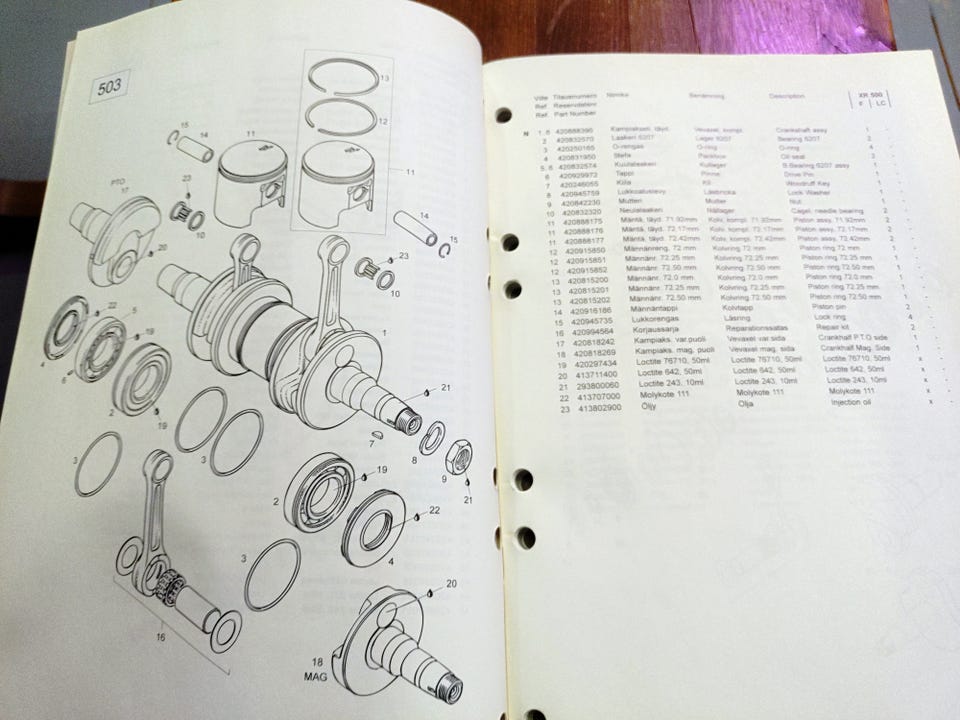 503
13
12
15
14
11
11
PTO
17
23
10
20
14
15
23
10
22
5
19
4
6
2
1
21
19
3
3
7
8
9
21
2
19
22
4
3
16
20
18
MAG
Viite Tilausnumero Nimike Benämning Description XR 500
Ref. Reservdelsnr F LC
Ref. Part Number
N 1, 6 420888390 Kampiakseli, täyd. Vevaxel, kompl. Crankshaft assy 1
2 420832570 Laakeri 6207 Lager 6207 Bearing 6207 2
3 420250165 O-rengas O-ring O-ring 4
4 420831950 Stefa Packbox Oil seal 2
5, 6 420832574 Kuulalaakeri Kullager B.Bearing 6207 assy 1
6 420929972 Tappi Pinne Drive Pin 1
7 420246055 Kiila Kil Woodruff Key 1
8 420945759 Lukkoaluslevy Låsbricka Lock Washer 1
9 420842230 Mutteri Mutter Nut 1
10 420832320 Neulalaakeri Nållager Cagel. needle bearing 2
11 420888175 Mäntä, täyd. 71.92mm Kolv, kompl. 71.92mm Piston assy, 71.92mm 2
11 420888176 Mäntä, täyd. 72.17mm Kolv, kompl. 72.17mm Piston assy, 72.17mm 2
11 420888177 Mäntä, täyd. 72.42mm Kolv, kompl. 72.42mm Piston assy, 72.42mm 2
12 420915850 Männänreng. 72 mm Kolvring 72 mm Piston ring 72 mm
12 420915851 Männänr. 72.25 mm Kolvring 72.25 mm Piston ring 72.25 mm
12 420915852 Männänr. 72.50 mm Kolvring 72.50 mm Piston ring 72.50 mm
13 420815200 Männänr. 72.0 mm Kolvring 72.0 mm Piston ring 72.0 mm
13 420815201 Männänr. 72.25 mm Kolvring 72.25 mm Piston ring 72.25 mm
13 420815202 Männänr. 72.50 mm Kolvring 72.50 mm Piston ring 72.50 mm
14 420916186 Männäntappi Kolvtapp Piston pin
15 420945735 Lukkorengas Låsring Lock ring
16 420994564 Korjaussarja Reparationssatas Repair kit
17 420818242 Kampiaks. var.puoli Vevaxel var.sida Crankhalf P.T.O side
18 420818269 Kampiaks. mag. puoli Vevaxel mag. sida Crankhalf Mag. Side
19 420297434 Loctite 76710, 50ml Loctite 76710, 50ml Loctite 76710, 50ml
20 413711400 Loctite 642, 50ml Loctite 642, 50ml Loctite 642, 50ml
21 293800060 Loctite 243, 10ml Loctite 243, 10ml Loctite 243, 10ml
22 413707000 Molykote 111 Molykote 111 Molykote 111
23 413802900 Öljy Olja Injection oil